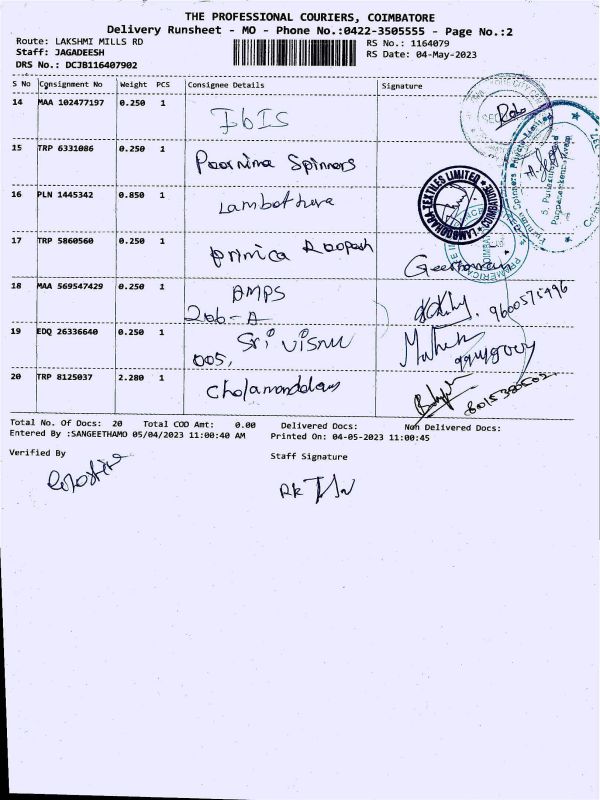 THE PROFESSIONAL COURIERS, COIMBATORE
Delivery Runsheet - MO - Phone No.:0422-3505555 - Page No.:2
Route: LAKSHMI MILLS RD RS No.: 1164079
Staff: JAGADEESH RS Date: 04-May-2023
DRS No.: DCJB116407902
S No Consignment No Weight PCS Consignee Details Signature
14 MAA 102477197 0.250 1 IbIS
15 TRP 6331086 0.250 1 Poornima Spinners
16 PLN 1445342 0.850 1 Lambothara
LAMBODHARA TEXTILES LIMITED * COIMBATORE *
17 TRP 5860560 0.250 1 Roopesh
18 MAA 569547429 0.250 1 AMPS
206-A 9600571496
19 EDQ 26336640 0.250 1 Sri Visnu
005,
20 TRP 8125037 2.280 1 Cholamandalam
Total No. Of Docs: 20 Total COD Amt: 0.00 Delivered Docs: Non Delivered Docs:
Entered By :SANGEETHAMO 05/04/2023 11:00:40 AM Printed On: 04-05-2023 11:00:45
Verified By Staff Signature